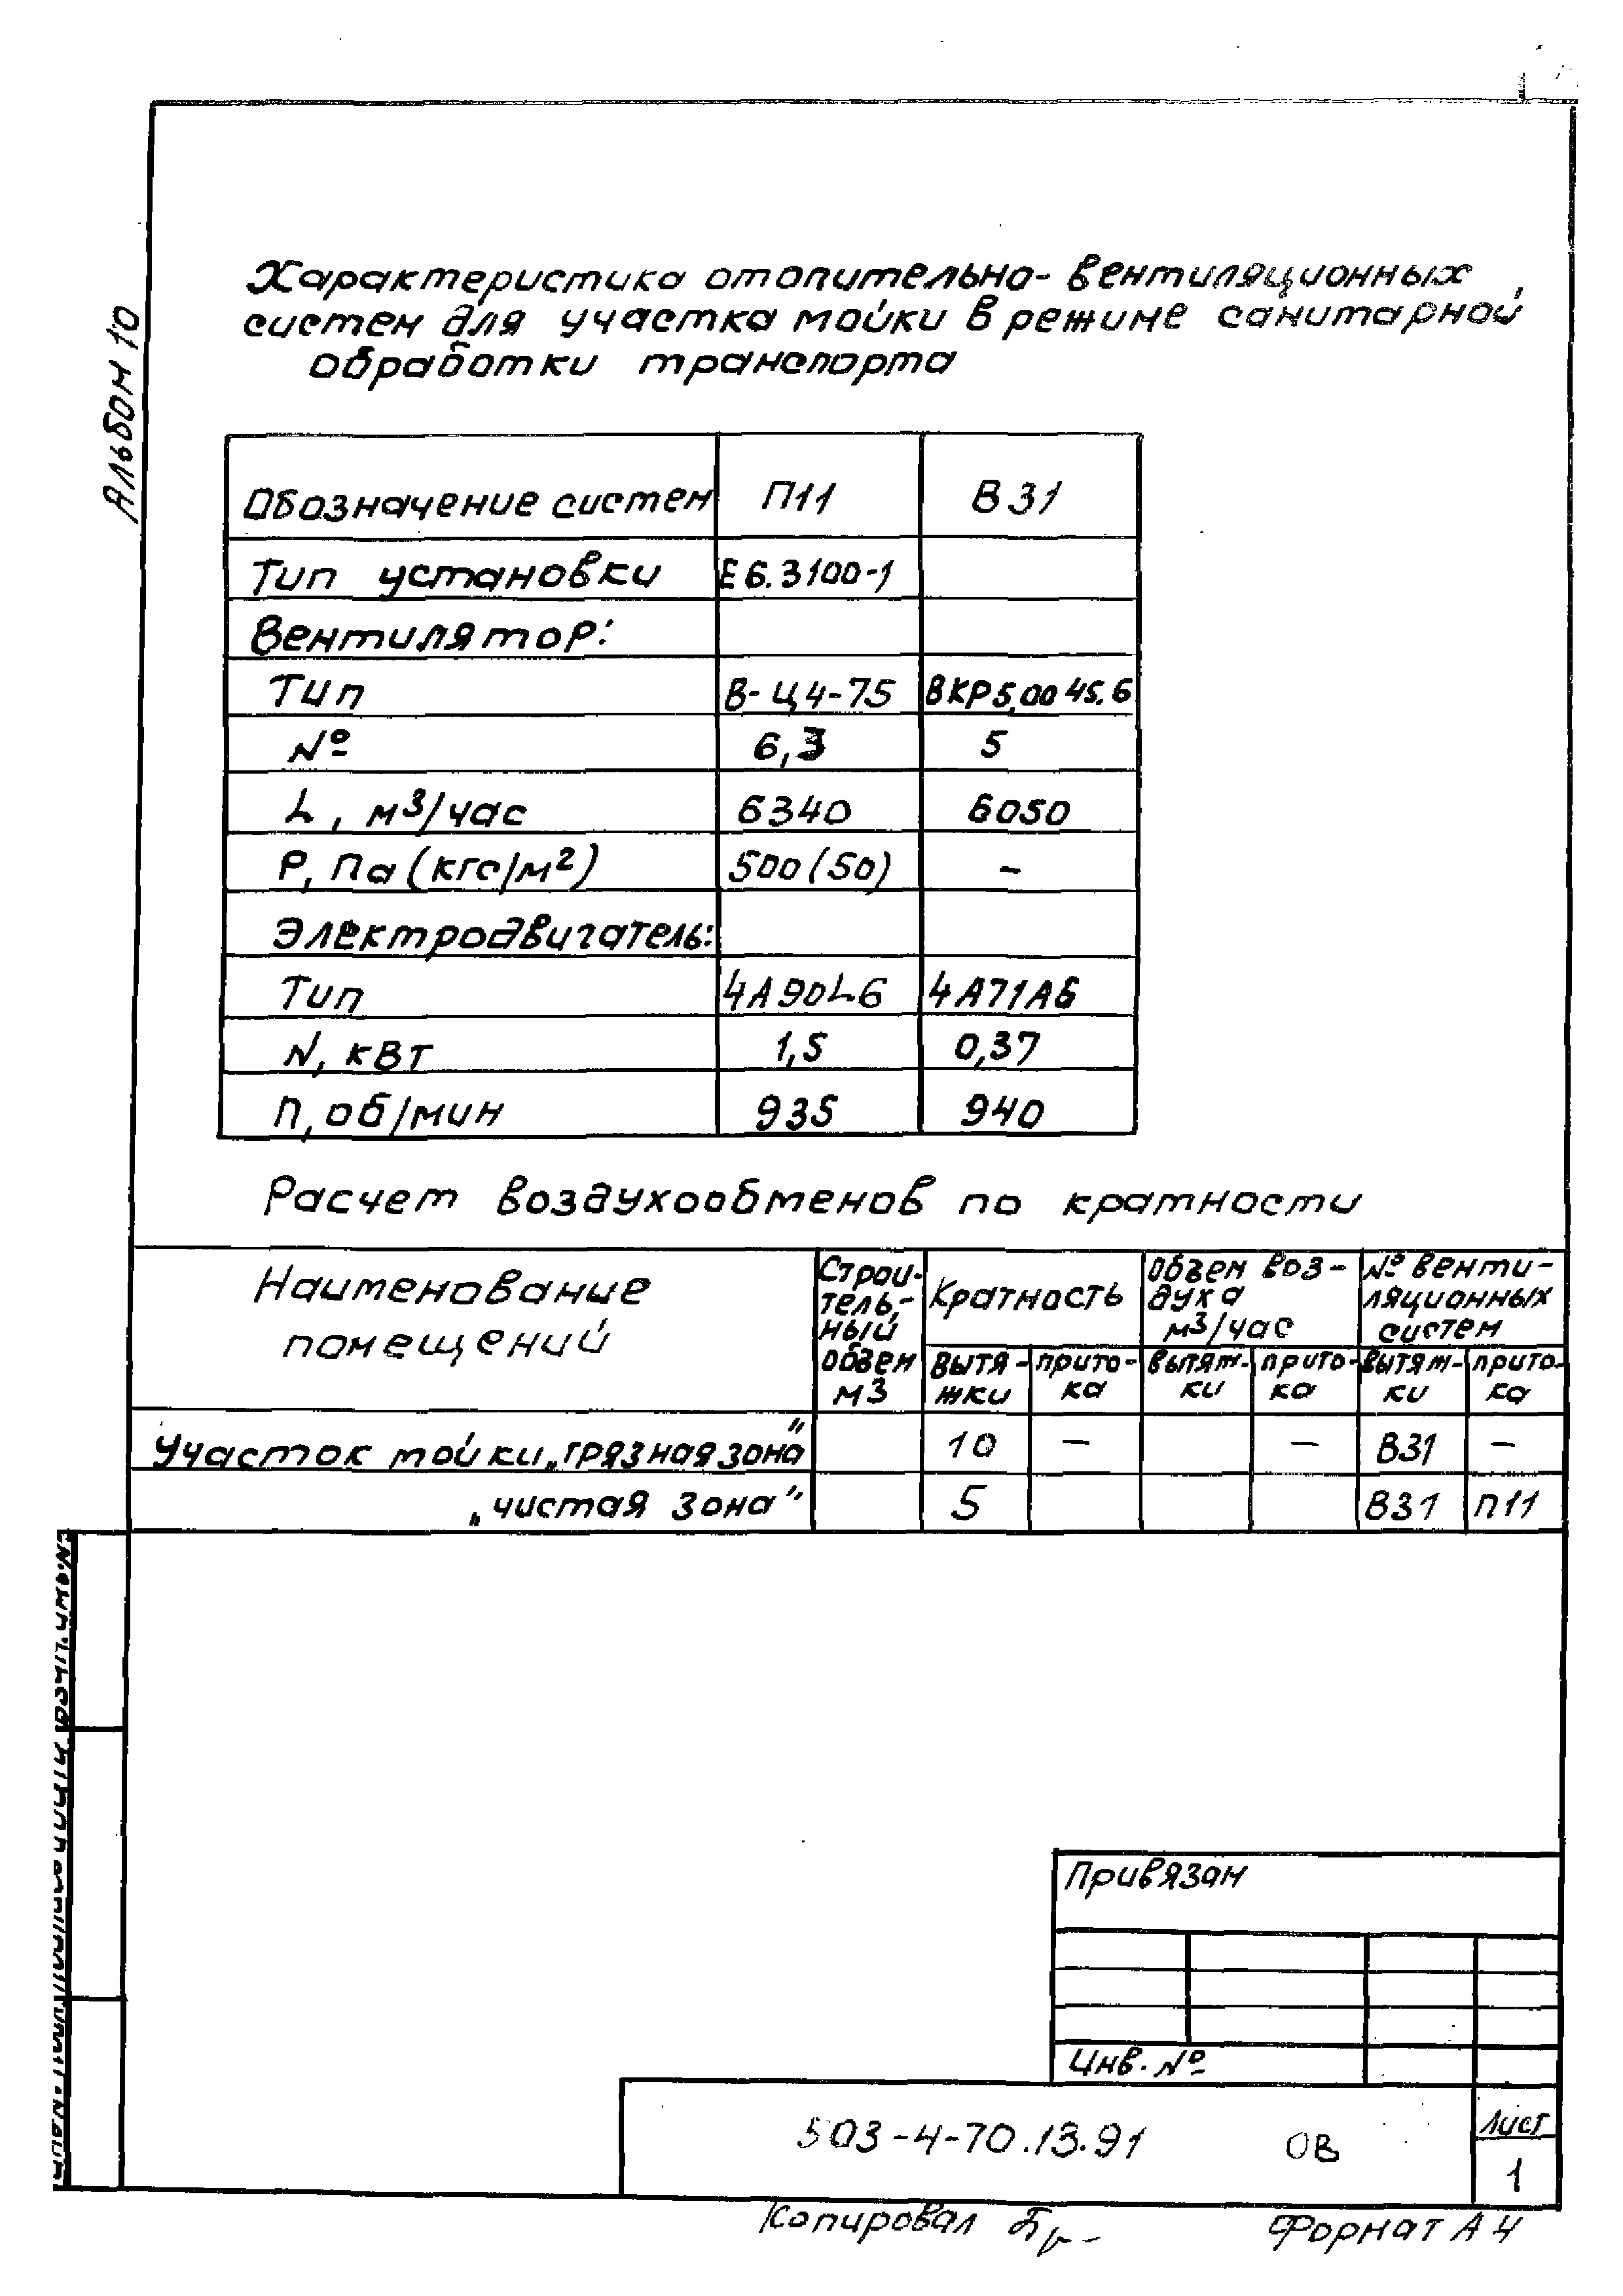 Альбом 10
Характеристика отопительно-вентиляционных
систем для участка мойки в режиме санитарной
обработки транспорта
Обозначение систем П11 В31
Тип установки Е6.3100-1
Вентилятор:
Тип В-Ц4-75 ВКР5,00 45.6
№ 6,3 5
L, м3/час 6340 6050
Р, Па (кгс/м²) 500(50) -
Электродвигатель:
Тип 4А90L6 4А71А6
N, кВт 1,5 0,37
П, об/мин 935 940
Расчет воздухообменов по кратности
Наименование
помещений
Строи-
тель-
ный
объем
м3
Кратность
Объем воз-
духа
м3/час
№ венти-
ляционных
систем
вытя-
жки
прито-
ка
вытяж-
ки
прито-
ка
вытяж-
ки
прито-
ка
Участок мойки „грязная зона" 10 - - В31 -
„чистая зона" 5 В31 П11
Привязан
Инв. №
503-4-70.13.91 ОВ
Лист
1
Копировал
Формат А4